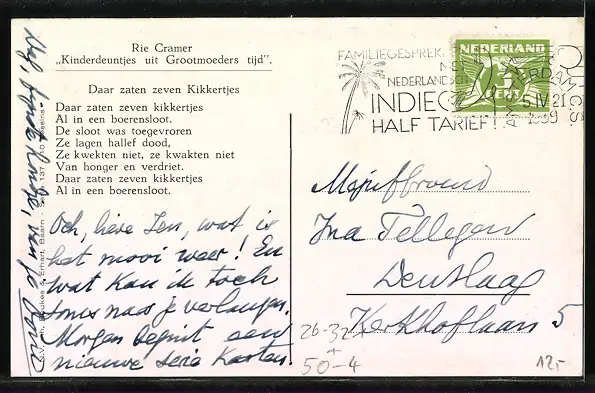 Rie Cramer
„Kinderdeuntjes uit Grootmoeders tijd”.
Daar zaten zeven Kikkertjes
Daar zaten zeven kikkertjes
Al in een boerensloot.
De sloot was toegevroren
Ze lagen hallef dood,
Ze kwekten niet, ze kwakten niet
Van honger en verdriet.
Daar zaten zeven kikkertjes
Al in een boerensloot.
Och, lieve Jen, wat is
het mooi weer! En
wat kan ik toch
soms naar je verlangen.
Morgen begint een
nieuwe serie kaarten.
FAMILIEGESPREK
NEDERLANDSCH
INDIE
HALF TARIEF!
NEDERLAND
5 IV 21
1939
Mejuffrouw
Ina Tellegen
Den Haag
Kerkhoflaan 5
26-32
+
50-4
12,-